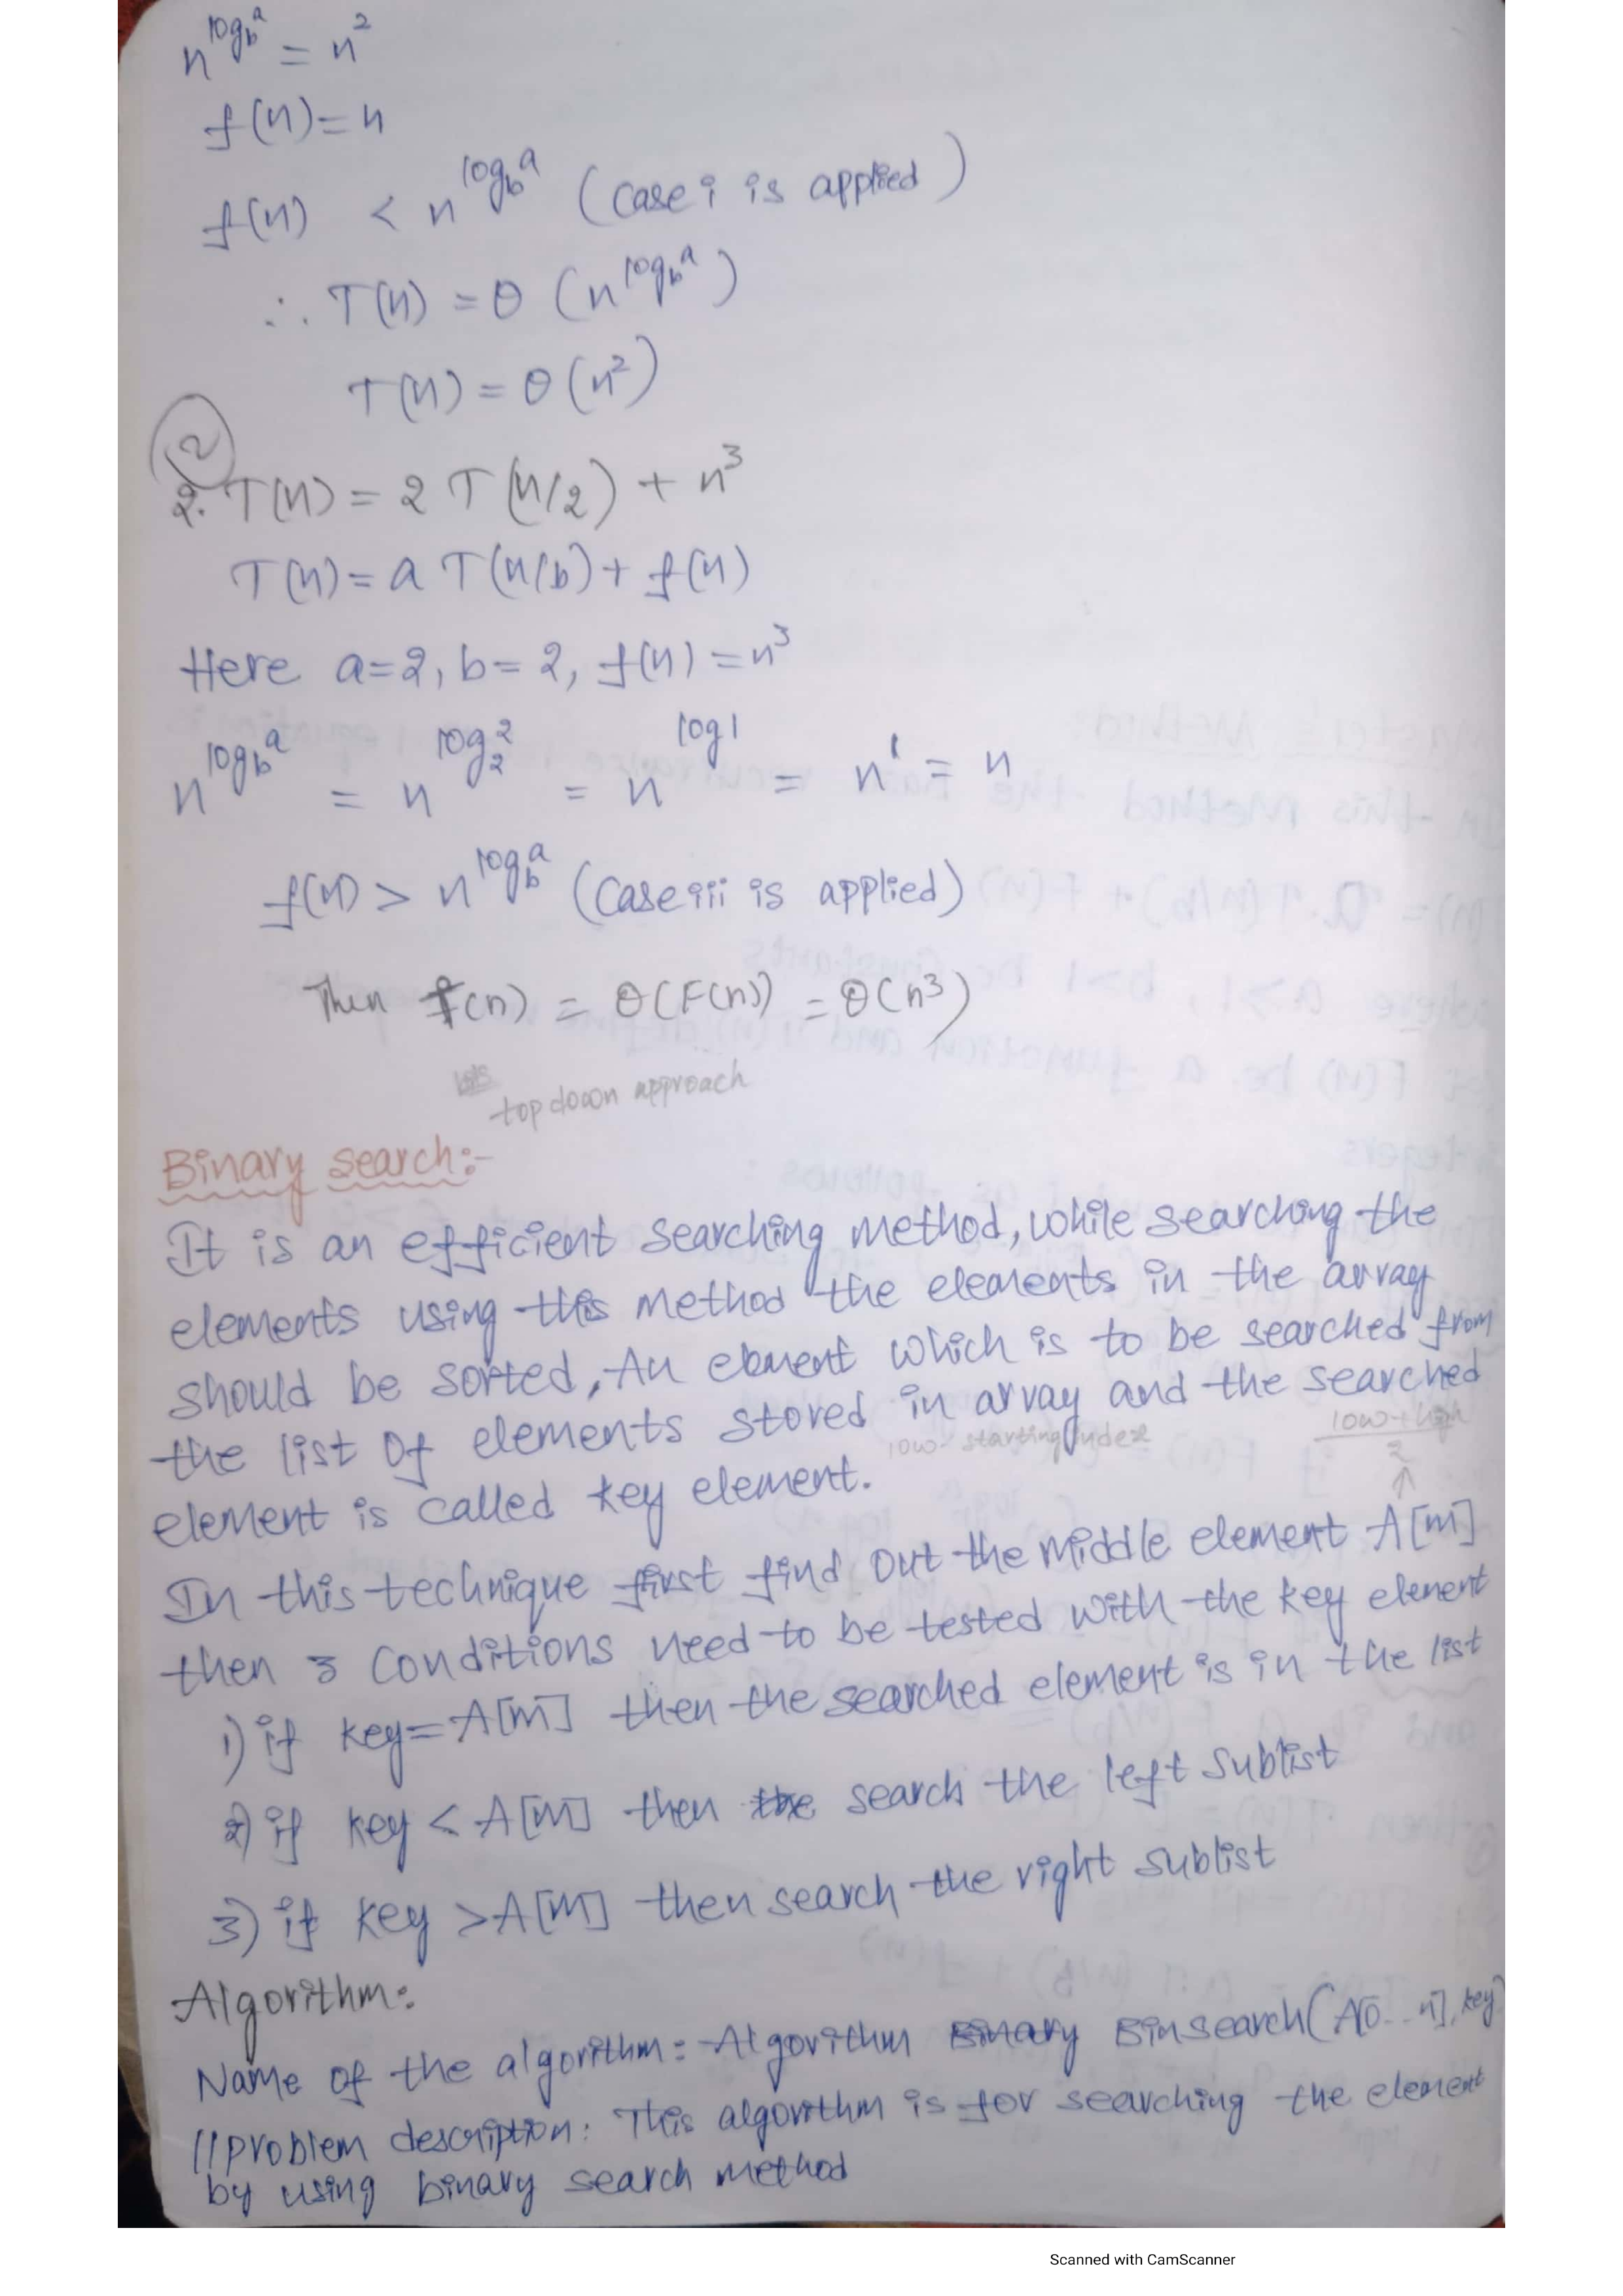 n^log_b^a = n^2
f(n) = n
f(n) < n^log_b^a (case i is applied)
∴ T(n) = θ (n^log_b^a)
T(n) = θ (n^2)
2
2. T(n) = 2 T (n/2) + n^3
T(n) = a T(n/b) + f(n)
Here a=2, b=2, f(n) = n^3
n^log_b^a = n^log_2^2 = n^log1 = n^1 = n
f(n) > n^log_b^a (case iii is applied)
Then f(n) = θ(F(n)) = θ(n^3)
top down approach
Binary search:-
It is an efficient searching method, while searching the
elements using this method the elements in the array
should be sorted, An element which is to be searched from
the list of elements stored in array and the searched
low - starting index
low + high
2
↑
element is called key element.
In this technique first find out the middle element A[m]
then 3 conditions need to be tested with the key element
1) if key = A[m] then the searched element is in the list
2) if key < A[m] then the search the left sublist
3) if key > A[m] then search the right sublist
Algorithm:
Name of the algorithm: Algorithm Binary Binsearch(A[0...n], key)
//problem description: This algorithm is for searching the element
by using binary search method
Scanned with CamScanner